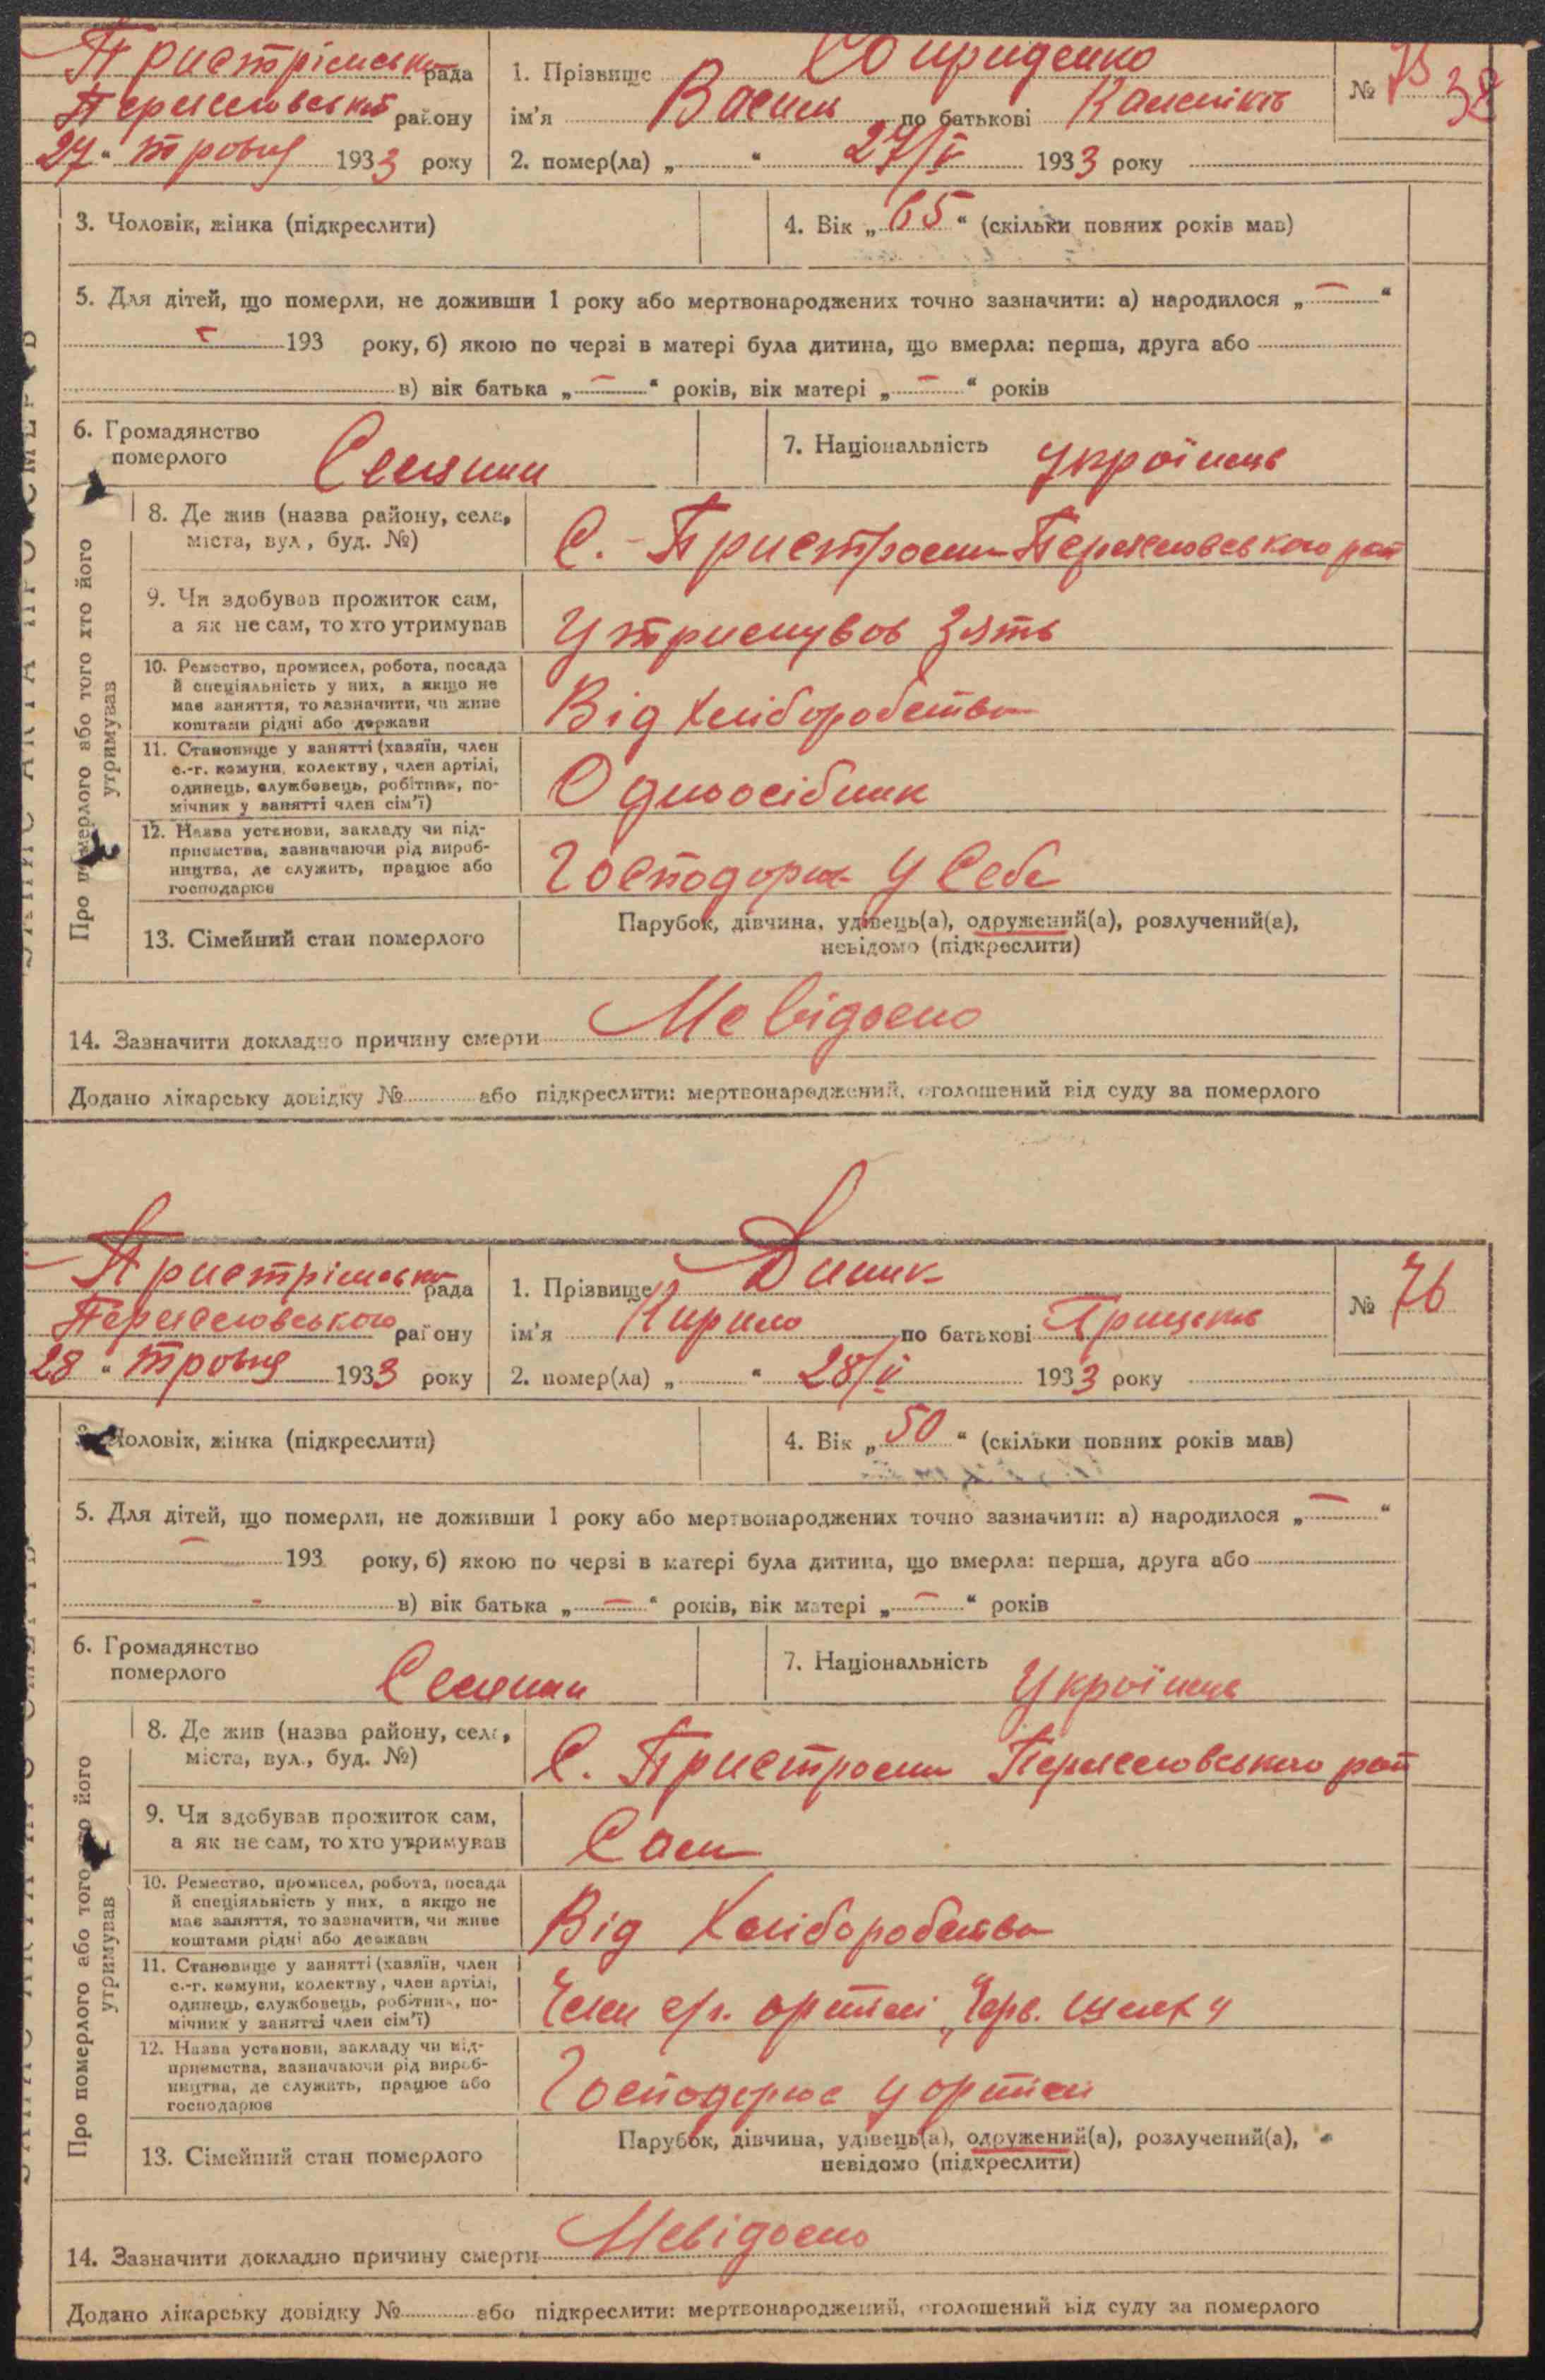 Пристрімська рада
Переяславської району
27 " травня 1933 року
1. Прізвище Спириденко
ім'я Василь по батькові
2. помер(ла) „ " 27/V 1933 року
№ 75 38
3. Чоловік, жінка (підкреслити)
4. Вік „ 65 “ (скільки повних років мав)
5. Для дітей, що померли, не доживши 1 року або мертвонароджених точно зазначити: а) народилося „ — “
— 193 року, б) якою по черзі в матері була дитина, що вмерла: перша, друга або
в) вік батька „ — “ років, вік матері „ — “ років
6. Громадянство
померлого Селянин
7. Національність Українець
Про померлого або того хто його
утримував
8. Де жив (назва району, села,
міста, вул., буд. №)
С. Пристроми Переяславського рай
9. Чи здобував прожиток сам,
а як не сам, то хто утримував
Утримував Зять
10. Ремество, промисел, робота, посада
й спеціяльність у них, а якщо не
має заняття, то зазначити, чи живе
коштами рідні або держави
Від Хліборобства
11. Становище у занятті (хазяїн, член
с.-г. комуни, колектву, член артілі,
одинець, службовець, робітник, по-
мічник у занятті член сім'ї)
Одноосібник
12. Назва установи, закладу чи під-
приємства, зазначаючи рід вироб-
ництва, де служить, працює або
господарює
Господарює у Себе
13. Сімейний стан померлого
Парубок, дівчина, удівець(а), одружений(а), розлучений(а),
невідомо (підкреслити)
14. Зазначити докладно причину смерти Невідомо
Додано лікарську довідку № або підкреслити: мертвонароджений, оголошений від суду за померлого
Пристрімська рада
Переяславського району
28 " травня 1933 року
1. Прізвище Диник
ім'я Кирило по батькові Грицьків
2. помер(ла) „ " 28/V 1933 року
№ 76
3. Чоловік, жінка (підкреслити)
4. Вік „ 50 “ (скільки повних років мав)
5. Для дітей, що померли, не доживши 1 року або мертвонароджених точно зазначити: а) народилося „ — “
— 193 року, б) якою по черзі в матері була дитина, що вмерла: перша, друга або
- в) вік батька „ — “ років, вік матері „ — “ років
6. Громадянство
померлого Селянин
7. Національність Українець
Про померлого або того хто його
утримував
8. Де жив (назва району, села,
міста, вул., буд. №)
С. Пристроми Переяславського рай
9. Чи здобував прожиток сам,
а як не сам, то хто утримував
Сам
10. Ремество, промисел, робота, посада
й спеціяльність у них, а якщо не
має заняття, то зазначити, чи живе
коштами рідні або держави
Від Хліборобства
11. Становище у занятті (хазяїн, член
с.-г. комуни, колектву, член артілі,
одинець, службовець, робітник, по-
мічник у занятті член сім'ї)
Член с/г. артілі „Черв. Шлях"
12. Назва установи, закладу чи під-
приємства, зазначаючи рід вироб-
ництва, де служить, працює або
господарює
Господарює у артілі
13. Сімейний стан померлого
Парубок, дівчина, удівець(а), одружений(а), розлучений(а),
невідомо (підкреслити)
14. Зазначити докладно причину смерти Невідомо
Додано лікарську довідку № або підкреслити: мертвонароджений, оголошений від суду за померлого